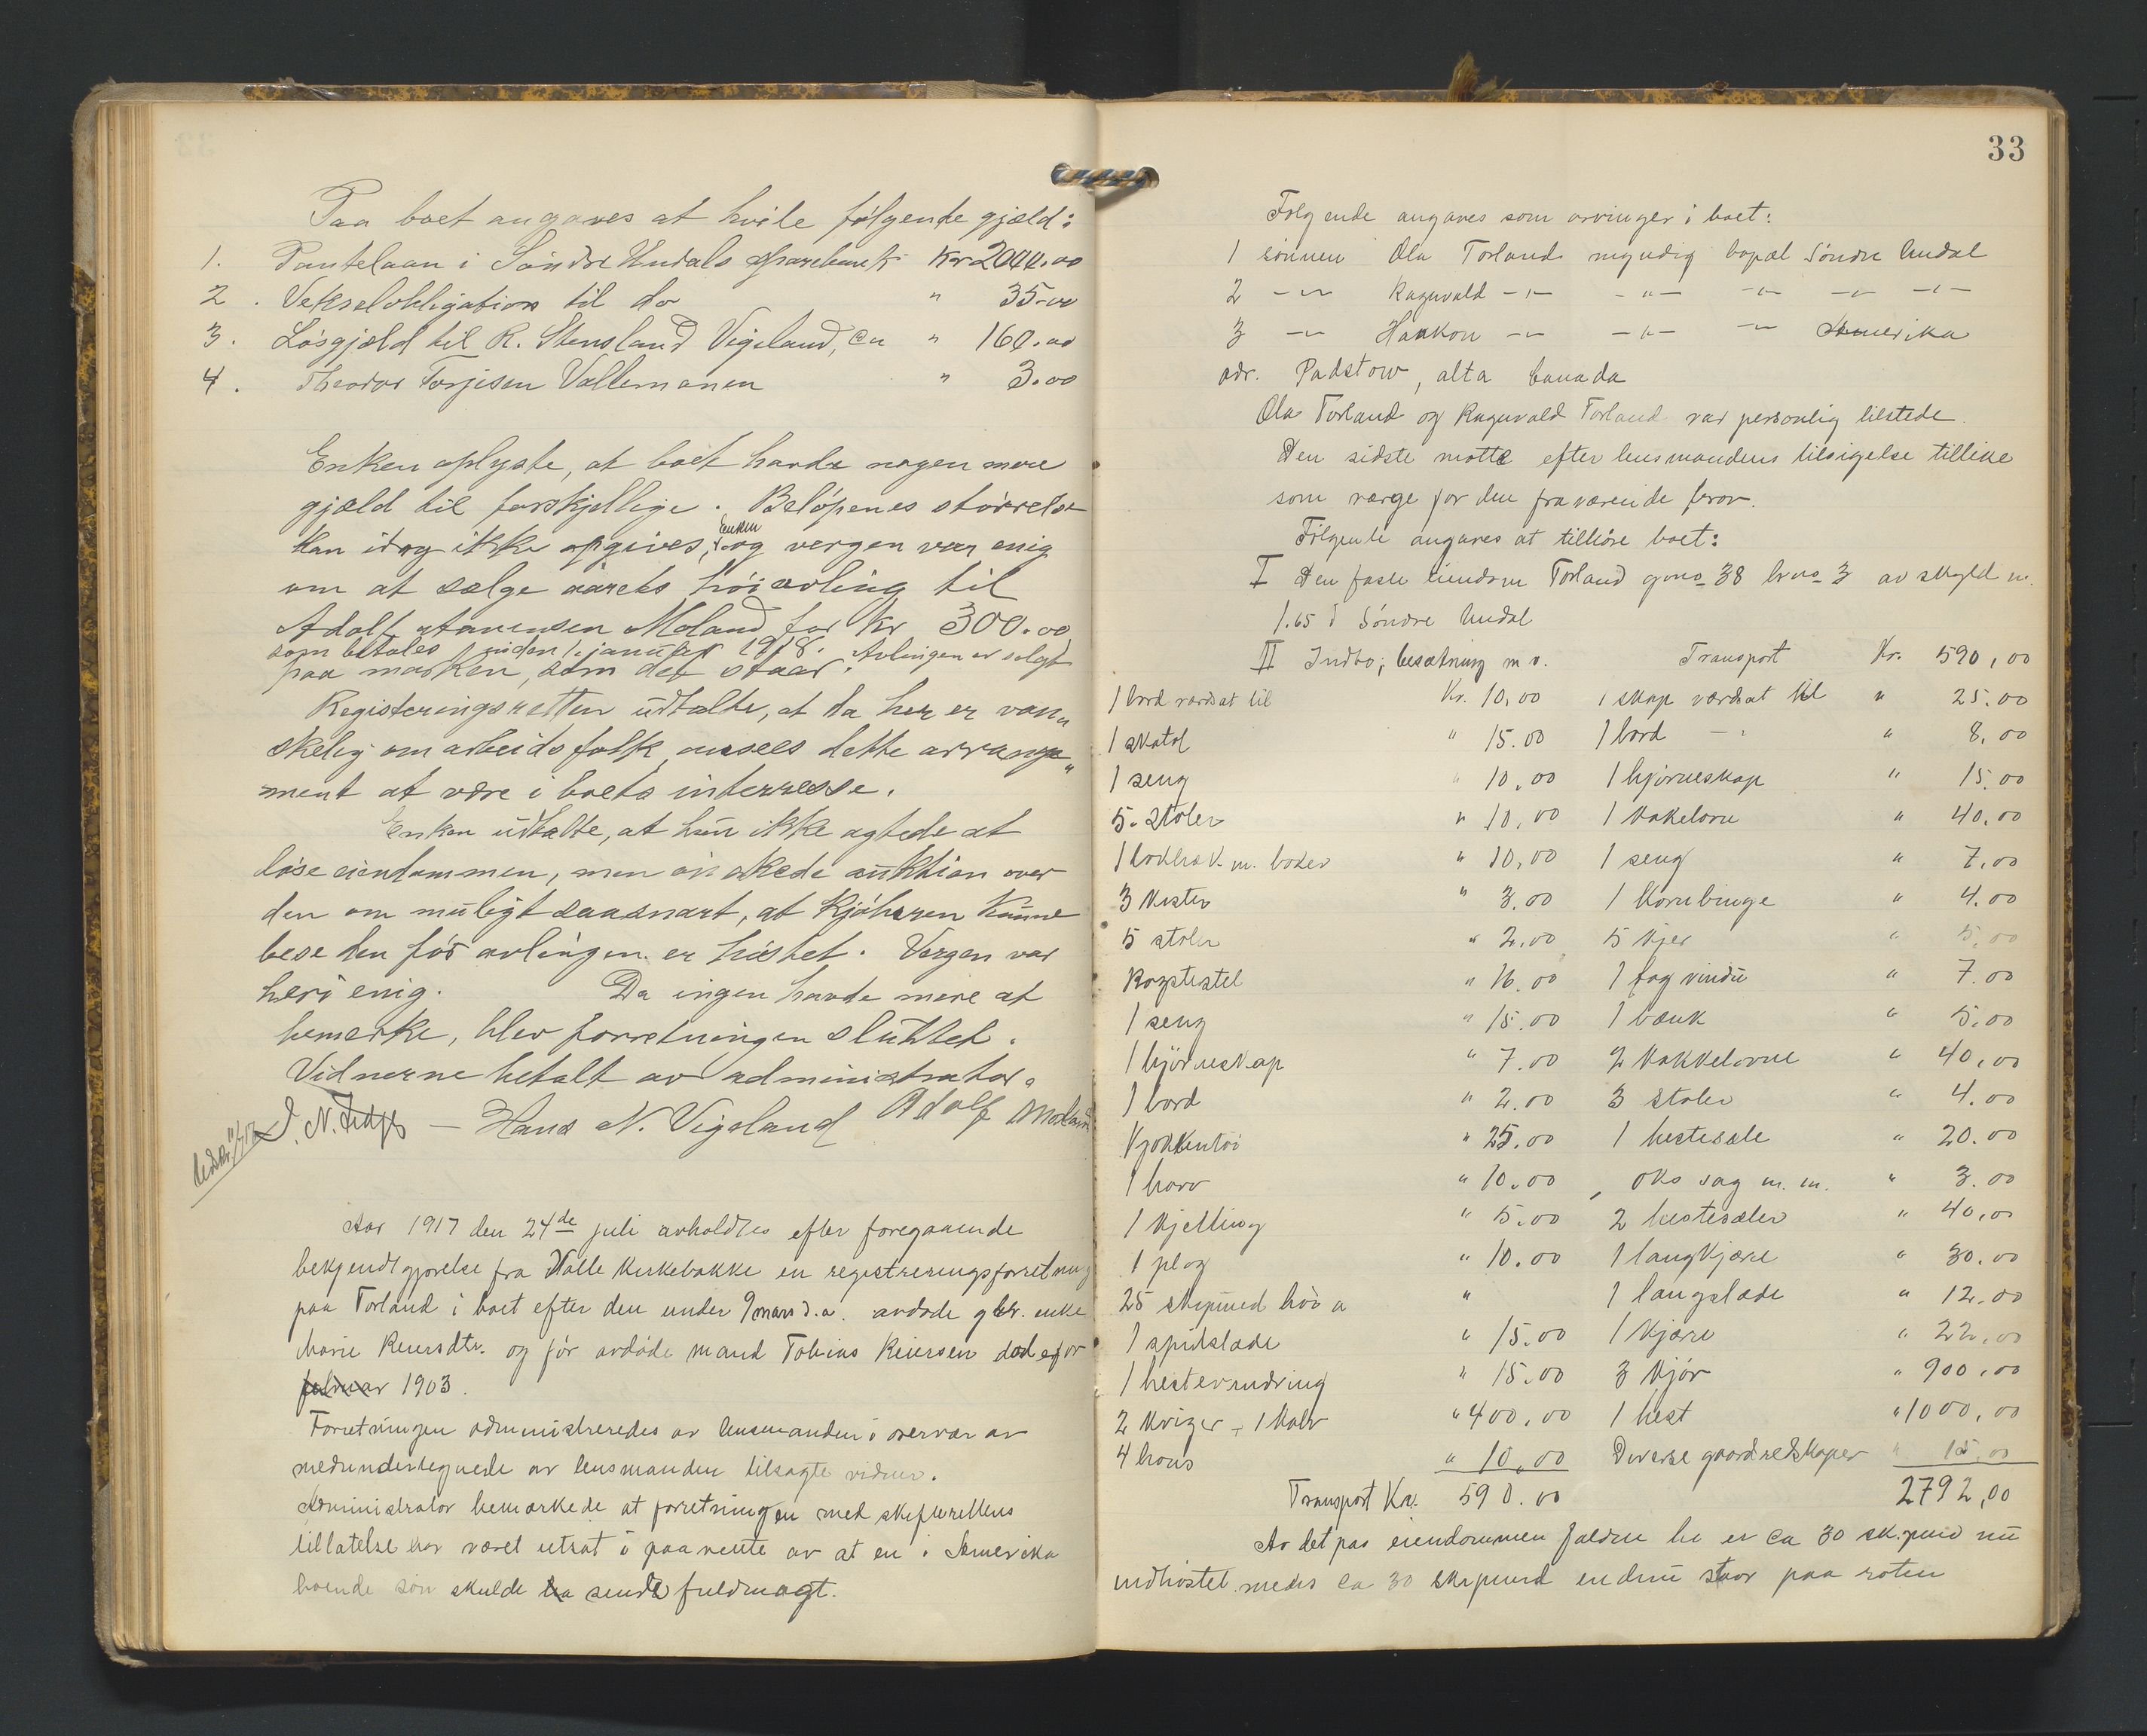 Paa boet angaves at hvile følgende gjæld:
1. Pantelaan i Søndre Undals Sparebank Kr 2000.00
2. Vekselobligation til do " 35.00
3. Løsgjæld til R. Stensland Vigeland, ca " 160.00
4. Theodor Torjesen Vallemoen " 3.00
Enken oplyste, at boet havde nogen mere
gjæld til forskjellige. Beløpenes størrelse
kan idag ikke opgives, Enken og vergen var enig
om at sælge aarets høiavling til
Adolf Moland for Kr 300.00
som betales inden 1. januar 1918. Avlingen er solgt
paa marken, som det staar.
Registeringsretten udtalte, at da her er van„
skelig om arbeidsfolk, ansees dette arrange„
ment at være i boets interresse.
Enken udtalte, at hun ikke agtede at
løse eiendommen, men ønskede auktion over
den om muligt saasnart, at kjøberen kunne
bese den før avlingen er høstet. Vergen var
heri enig. Da ingen havde mere at
bemerke, blev forretningen sluttet.
Vidnerne betalt av administrator.
Hans N. Vigeland Adolf Moland
Aar 1917 den 24de juli avholdtes efter foregaaende
bekjendtgjørelse fra Valle Kirkebakke en registreringsforretning
paa Torland i boet efter den under 9 mars d.a. avdøde gbr. enke
Marie Reiersdtr. og før avdøde mand Tobias Reiersen død
februar 1903.
Forretningen administreredes av lensmanden i overvær av
medundertegnede av lensmanden tilsagte vidner.
Administrator bemerkede at forretningen med skifterettens
tillatelse har været utsat i paavente av at en i Amerika
boende søn skulde ha sendt fuldmagt.
33
Følgende angaves som arvinger i boet:
1 sønnen Ola Torland myndig bopæl Søndre Undal
2 -"- Ragnvald -"- -"- -"- -"- -"-
3 -"- Haakon -"- -"- -"- Amerika
adr. Padstow, alta Canada
Ola Torland og Ragnvald Torland var personlig tilstede.
Den sidste møtte efter lensmandens tilsigelse tillike
som værge for den fraværende bror.
Følgende angaves at tilhøre boet:
I Den faste eiendom Torland gno 38 brno 3 av skyld m.
1.65 i Søndre Undal
II Indbo, besætning m.v. Transport Kr. 590,00
1 bord værdsat til Kr. 10,00 1 skap værdsat til " 25.00
1 skatol " 15.00 1 bord -"- " 8.00
1 seng " 10,00 1 hjørneskap " 15.00
5 stoler " 10,00 1 kakelovn " 40.00
1 m. bøker " 10,00 1 seng " 7.00
3 kister " 3.00 1 kornbinge " 4.00
5 stoler " 2.00 5 kjer " 5.00
" 16.00 1 fag vindu " 7.00
1 seng " 15.00 1 bænk " 5.00
1 hjørneskap " 7.00 2 kakkelovne " 40,00
1 bord " 2.00 3 stoler " 4.00
Kjøkkentøi " 25.00 1 hestesæle " 20.00
1 harv " 10.00 , øks sag m.m. " 3.00
1 kjelling " 5.00 2 hestesæler " 40,00
1 plog " 10.00 1 langkjære " 30.00
25 skipund høi a " 1 langslæde " 12.00
1 spidslæde " 15.00 1 kjære " 22,00
1 hestevendring " 15.00 3 kjør " 900.00
2 kviger + 1 kalv " 400,00 1 hest " 1000,00
4 høns " 10,00 Diverse gaardredskaper " 15.00
Transport Kr. 590.00 2792,00
Av det paa eiendommen faldne hø er ca 30 sk.pund nu
indhøstet medes ca 30 skipund endnu staar paa roten